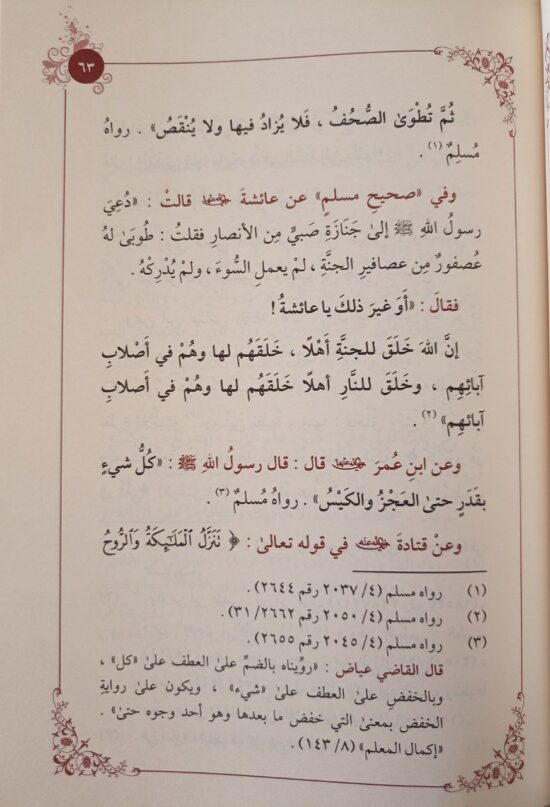 ٦٣
ثُمَّ تُطْوَىٰ الصُّحُفُ ، فَلا يُزادُ فيها ولا يُنْقَصُ» . رواهُ
مُسلِمٌ (١) .
وفي «صحيحِ مسلمٍ» عن عائشةَ رضي الله عنها قالتْ : «دُعِيَ
رسولُ اللهِ ﷺ إلىٰ جَنَازَةِ صَبيٍّ مِن الأنصارِ فقلتُ : طُوبَىٰ لهُ
عُصفورٌ مِن عصافيرِ الجنَّةِ ، لمْ يعملِ السُّوءَ ، ولمْ يُدْرِكْهُ .
فقالَ : «أَوَ غيرَ ذلكَ يا عائشةُ !
إنَّ اللهَ خَلَقَ للجنَّةِ أَهْلًا ، خَلَقَهُم لها وهُمْ في أَصْلابِ
آبائِهِم ، وخَلَقَ للنَّارِ أهلًا خَلَقَهُم لها وهُمْ في أصلابِ
آبائهِم» (٢) .
وعن ابنِ عُمرَ رضي الله عنهما قال : قال رسولُ اللهِ ﷺ : «كُلُّ شيءٍ
بقَدَرٍ حتىٰ العَجْزُ والكَيْسُ» . رواهُ مُسلمٌ (٣) .
وعنْ قتادةَ رضي الله عنه في قوله تعالىٰ : ﴿ تَنَزَّلُ ٱلْمَلَٰٓئِكَةُ وَٱلرُّوحُ
(١) رواه مسلم (٤/ ٢٠٣٧ رقم ٢٦٤٤) .
(٢) رواه مسلم (٤/ ٢٠٥٠ رقم ٢٦٦٢/ ٣١) .
(٣) رواه مسلم (٤/ ٢٠٤٥ رقم ٢٦٥٥) .
قال القاضي عياض : «روِّيناه بالضمِّ علىٰ العطف علىٰ «كل» ،
وبالخفضِ علىٰ العطف علىٰ «شيء» ، ويكون علىٰ روايةِ
الخفض بمعنىٰ التي خفض ما بعدها وهو أحد وجوه حتىٰ» .
«إكمال المعلم» (٨/ ١٤٣) .